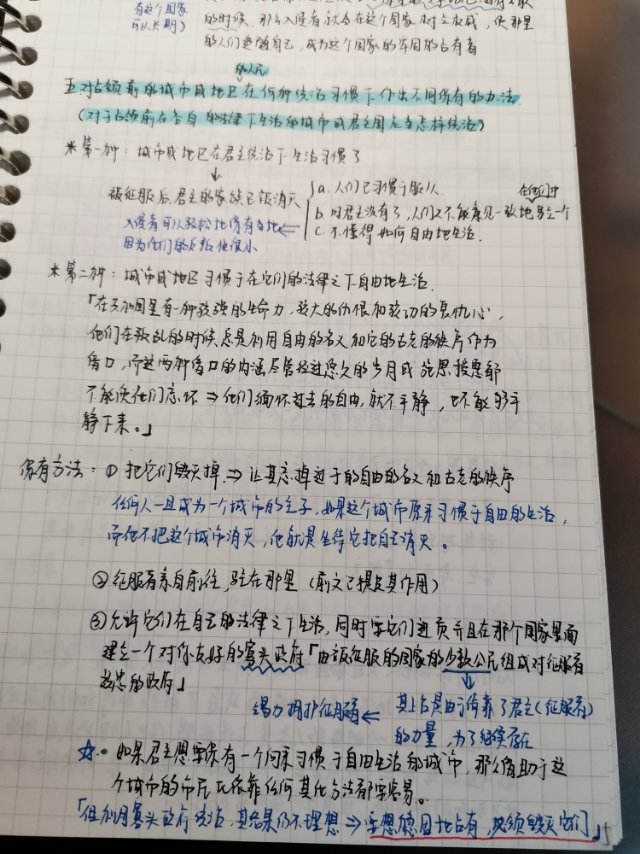 有这个国家
可以长期)
的时候，那么入侵者就会在这个国家树立权威，使那里
的人们追随自己，成为这个国家的牢固的占有者
的人民
五.对占领前的城市或地区在何种统治习惯下作出不同保有的办法.
(对于占领前在各自的法律下生活的城市或君主国应当怎样统治)
*第一种：城市或地区在君主统治下生活习惯了
↓
被征服后,君主的家族已被消灭
a.人们已习惯于服从.
在他们中
b.旧君主没有了,人们又不能意见一致地另立一个
c.不懂得如何自由地生活.
入侵者可以轻松地保有当地 ⇐
因为他们的反抗性很小
*第二种：城市或地区习惯于在它们的法律之下自由地生活.
「在共和国里有一种较强的生命力,较大的仇恨和较切的复仇心,
他们在叛乱的时候总是利用自由的名义和它的古老的秩序作为
借口,而这两种借口的内涵尽管经过悠久的岁月或施恩授惠都
不能使他们忘怀⇒他们缅怀过去的自由,就不平静,也不能够平
静下来。」
保有方法：①把它们毁灭掉⇒让其忘掉过于的自由的名义和古老的秩序
任何人一旦成为一个城市的主子,如果这个城市原来习惯于自由的生活,
而他不把这个城市消灭,他就是坐待它把自己消灭。
②征服者亲自前往,驻在那里(前文已提及其作用)
③允许它们在自己的法律之下生活,同时要它们进贡并且在那个国家里面
建立一个对你友好的寡头政府「由被征服的国家的少数公民组成对征服者
效忠的政府」
竭力拥护征服者 ⇐ 其上台是由于倚靠了君主(征服者)
的力量,为了继续存在
☆·如果君主想要保有一个向来习惯于自由生活的城市,那么借助于这
个城市的市民比依靠任何其他方法都要容易。
「但利用寡头政府统治,其结果仍不理想⇒要想稳固地占有,必须毁灭它们」